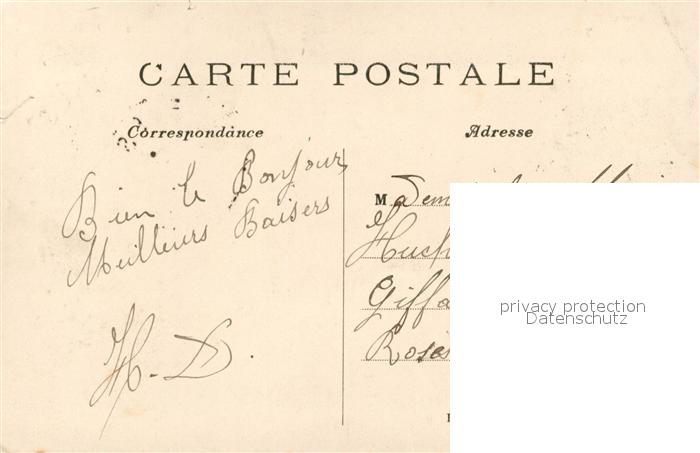 CARTE POSTALE
Correspondance
Adresse
Bien le Bonjour
Meilleurs Baisers
H. D.
M
privacy protection
Datenschutz